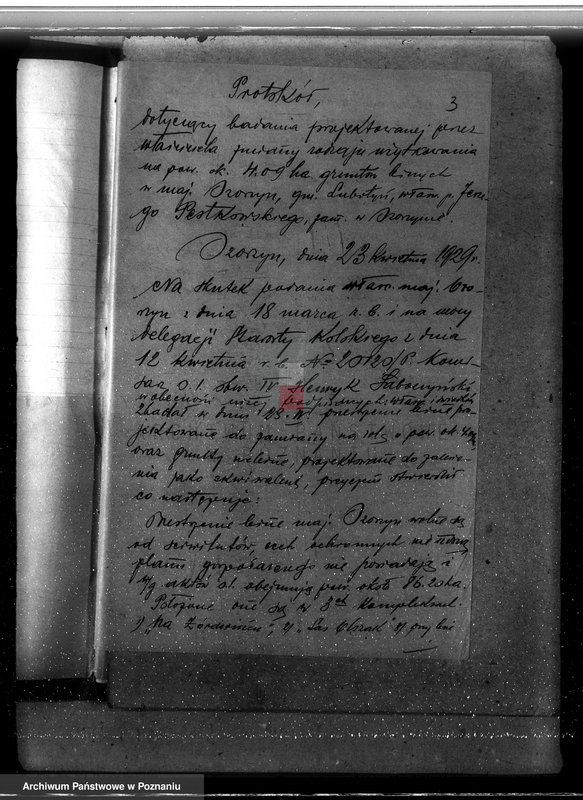 Protokół,
3
dotyczący badania projektowanej przez
właściciela zmiany rodzaju użytkowania
na pow. ok. 4.09 ha gruntów leśnych
w maj. Ozorzyn, gm. Lubotyń, własn. p. Jerze-
go Pestkowskiego, zam. w Ozorzynie.
Ozorzyn, dnia 23 kwietnia 1929 r.
Na skutek podania właśc. maj. Ozo-
rzyn z dnia 18 marca r. b. i na mocy
delegacji Starosty Kolskiego z dnia
12 kwietnia r. b. № Komi-
sarz O. L. obw. IV Henryk
w obecności niżej podpisanych:
zbadał w dniu 23. IV przestrzenie leśne pro-
jektowane do zamiany na rolę o pow. ok.
oraz grunty nieleśne, projektowane do zalesie-
nia jako ekwiwalent, przyczem stwierdził
co następuje:
Przestrzenie leśne maj. Ozorzyn wolne są
od serwitutów, cech ochronnych nie
planu gospodarczego nie posiadają i
w/g aktów o. l. obejmują pow. około 86.20 ha.
Położone one są w 8ch kompleksach.
1) "Na", 2) "Las Olszak"